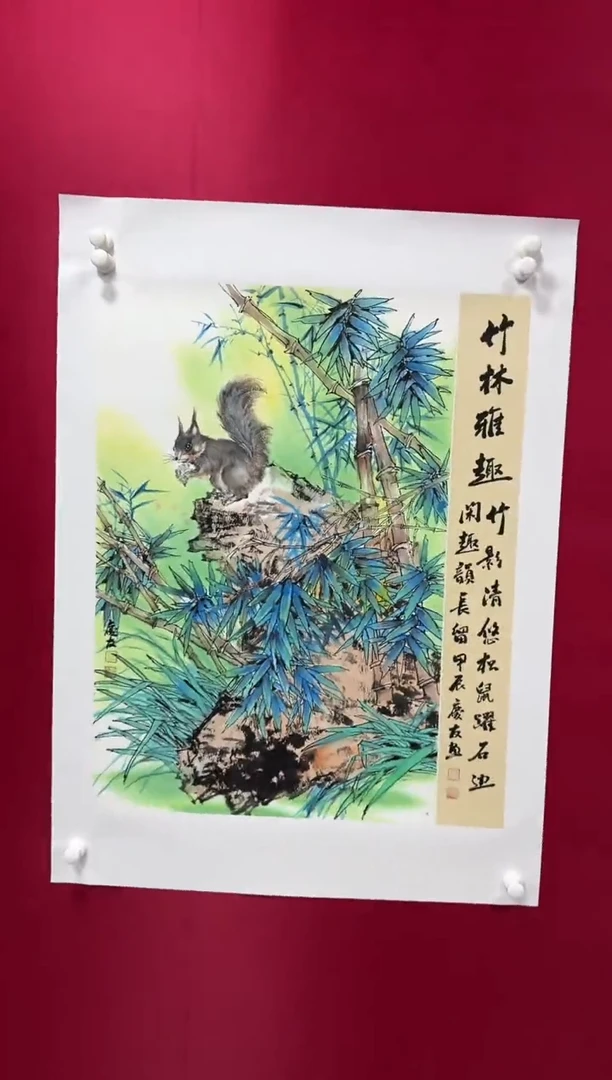 竹林雅趣
竹影清悠松鼠躍石迎
闲趣韻長留甲辰慶友画
慶友